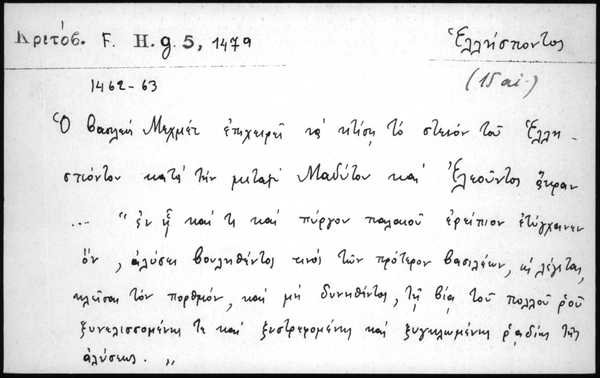 Κριτόβ. F. H. g. 5, 1479
Ἑλλήσποντος
1462-63
(15 αἰ.)
Ὁ βασιλεὺς Μεχμὲτ ἐπιχειρεῖ νὰ κτίσῃ τὸ στενὸν τοῦ Ἑλλη
σπόντου κατὰ τὴν μεταξὺ Μαδύτου καὶ Ἐλεοῦντος
... "ἐν ᾗ καί τι καὶ πύργου παλαιοῦ ἐρείπιον ἐτύγχανεν
ὄν, ἁλύσει βουληθέντος τινὸς τῶν πρότερον βασιλέων, ὡς λέγεται,
κλεῖσαι τὸν πορθμόν, καὶ μὴ δυνηθέντος, τῇ βίᾳ τοῦ πολλοῦ ῥοῦ
ξυνελισσομένης τε καὶ ξυστρεφομένης καὶ ξυγκλωμένης ῥᾳδίως τῆς
ἁλύσεως. "